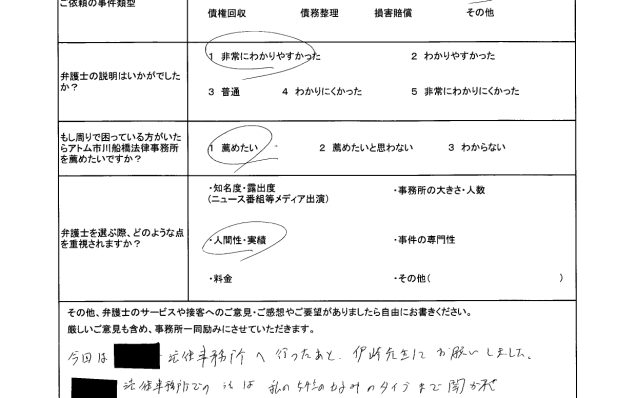 ご依頼の事件類型
債権回収 債務整理 損害賠償 その他
弁護士の説明はいかがでしたか？
1 非常にわかりやすかった 2 わかりやすかった
3 普通 4 わかりにくかった 5 非常にわかりにくかった
もし周りで困っている方がいた
らアトム市川船橋法律事務所
を薦めたいですか？
1 薦めたい 2 薦めたいと思わない 3 わからない
弁護士を選ぶ際、どのような点
を重視されますか？
・知名度・露出度
（ニュース番組等メディア出演）
・事務所の大きさ・人数
・人間性・実績
・事件の専門性
・料金
・その他（ ）
その他、弁護士のサービスや接客へのご意見・ご感想やご要望がありましたら自由にお書きください。
厳しいご意見も含め、事務所一同励みにさせていただきます。
今回は 法律事務所へ行ったあと、伊崎先生にお願いしました。
法律事務所での は 私の